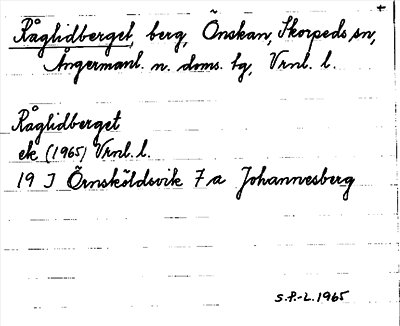 +
Råglidberget, berg, Önskan, Skorpeds sn,
Ångermanl. n. doms. tg, Vrnl. l.
Råglidberget
ek (1965) Vrnl. l.
19 J Örnsköldsvik 7 a Johannesberg
S.P.-L. 1965